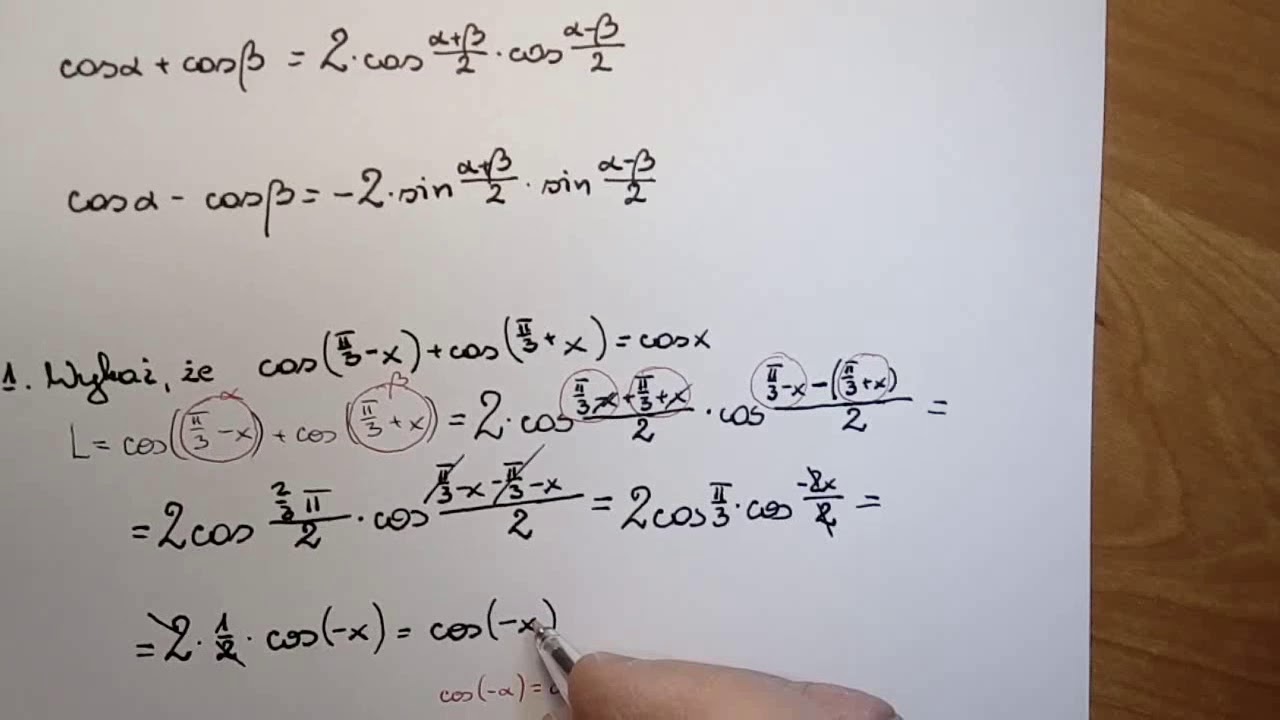 cosα + cosβ = 2·cos (α+β)/2 · cos (α-β)/2
cosα - cosβ = -2·sin (α+β)/2 · sin (α-β)/2
1. Wykaż, że cos(π/3 - x) + cos(π/3 + x) = cosx
α β
L = cos(π/3 - x) + cos(π/3 + x) = 2·cos (π/3 - x + π/3 + x)/2 · cos (π/3 - x - (π/3 + x))/2 =
= 2cos (2/3 π)/2 · cos (π/3 - x - π/3 - x)/2 = 2cos π/3 · cos (-2x)/2 =
= 2 · 1/2 · cos(-x) = cos(-x)
cos(-α) =